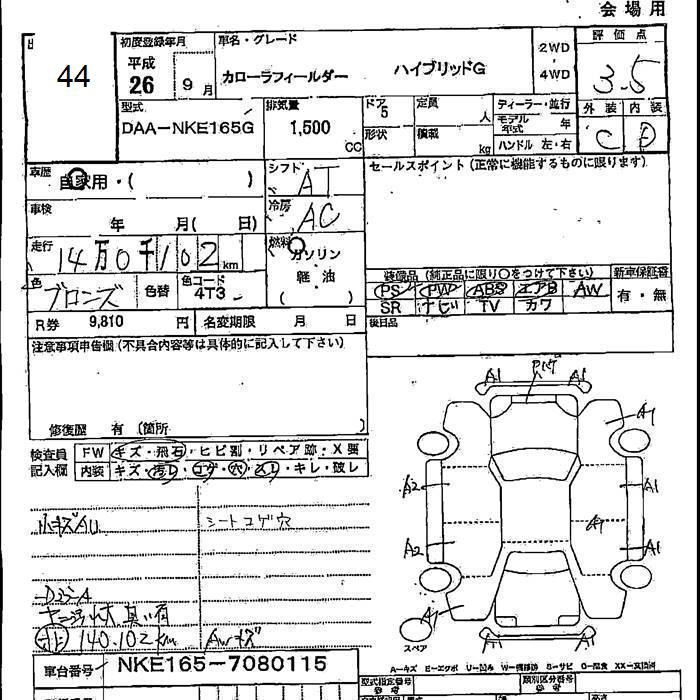 会場用
44
初度登録年月
平成
26 9月
車名・グレード
カローラフィールダー ハイブリッドG
2WD
4WD
評価点
3.5
外装 内装
C D
型式
DAA-NKE165G
排気量
1,500
CC
ドア
5
形状
定員
人
積載
kg
ディーラー・並行
モデル年式 年
ハンドル 左・右
車歴
自家用・( )
シフト
AT
セールスポイント(正常に機能するものに限ります)
車検
年 月( 日)
冷房
AC
走行
14万0千102km
燃料
ガソリン
軽・油
( )
色
ブロンズ
色替
色コード
4T3
装備品(純正品に限り〇をつけて下さい)
新車保証書
PS PW ABS エアB AW
有・無
SR ナビ TV カワ
R券 9,810 円
名変期限 月 日
後日品
注意事項申告欄(不具合内容等は具体的に記入して下さい)
修復歴 有 (箇所 )
検査員
記入欄
FW キズ・飛石・ヒビ割・リペア跡・X要
内装 キズ・汚レ・コゲ・穴・スレ・キレ・破レ
小キズAU
シートコゲ穴
140.102km
AWキズ
車台番号 NKE165-7080115
A1 A1
A1
A2 A1
A2 A1
A1
スペア
A-キズ E-エクボ U-凹み W-補修跡 S-サビ C-腐食 XX-交換済
型式指定番号
類別区分番号